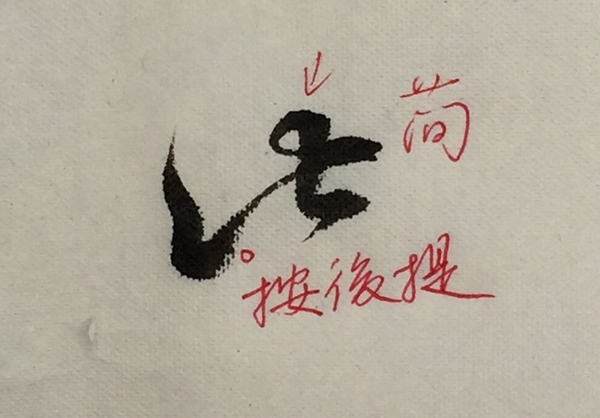 简
按後提